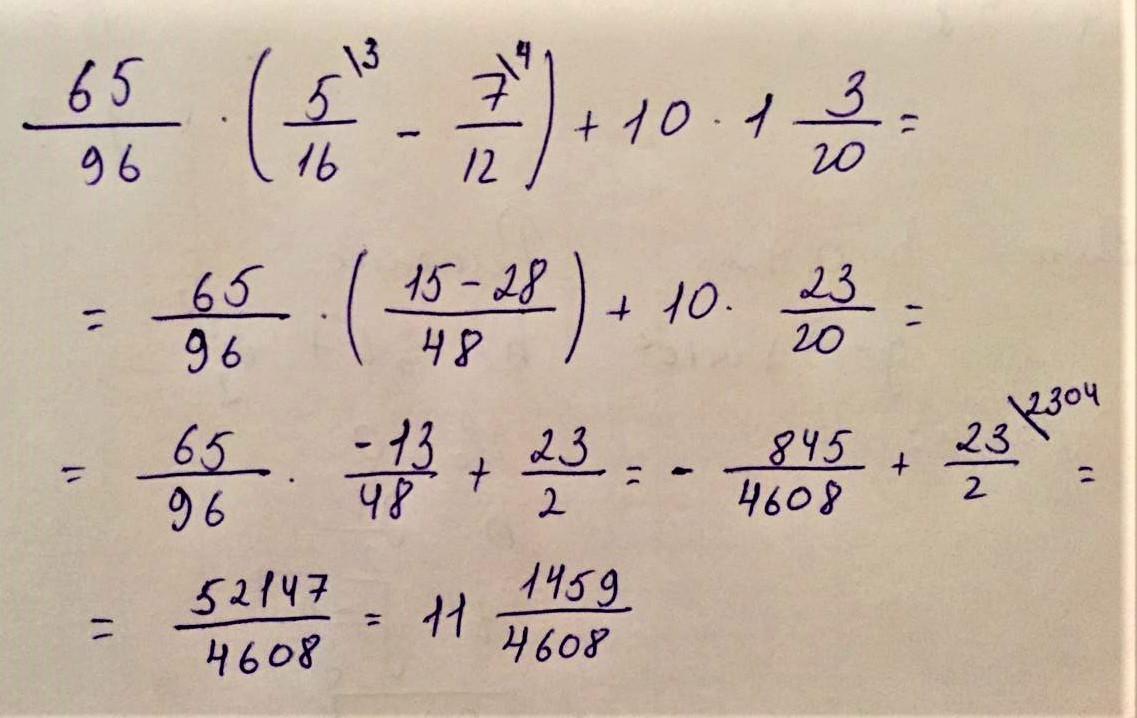 65/96 · (5/16 \3 - 7/12 \4) + 10 · 1 3/20 =
= 65/96 · ((15-28)/48) + 10 · 23/20 =
= 65/96 · -13/48 + 23/2 = - 845/4608 + 23/2 \2304 =
= 52147/4608 = 11 1459/4608